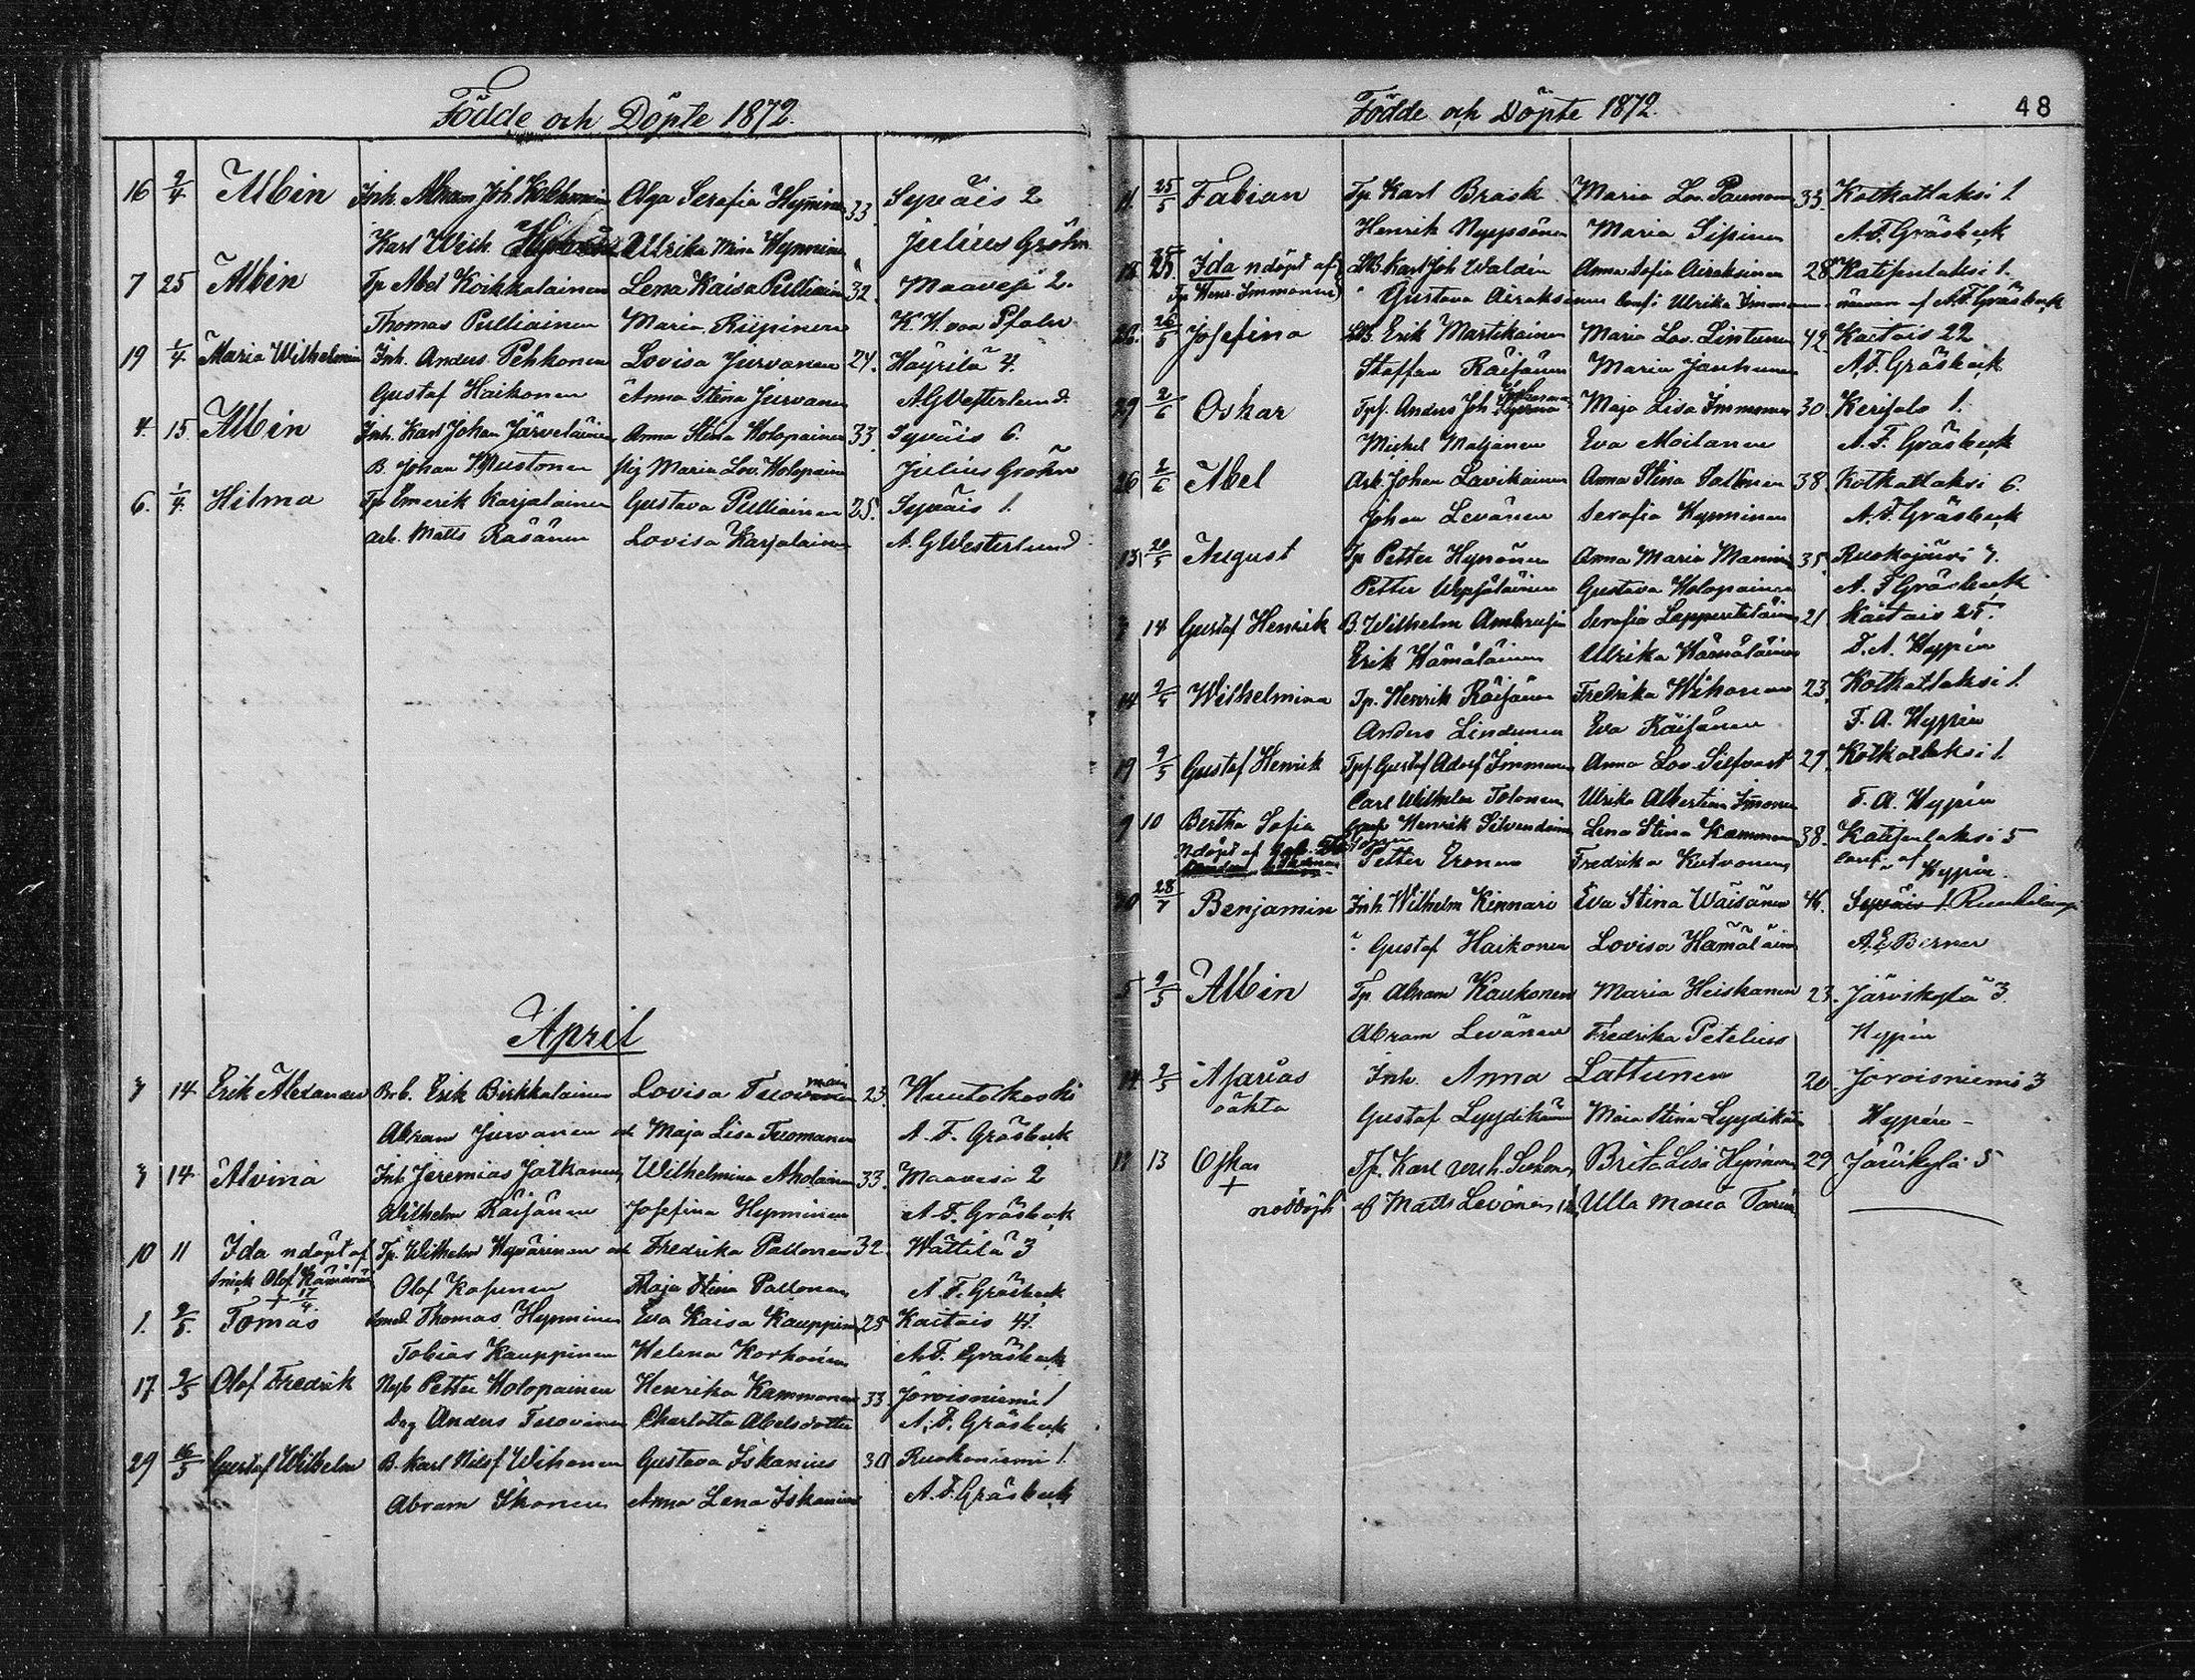 Födde och Döpte 1872.
16 9/4 Albin Inh. Abram Joh. Olga Serafia Hyninen 33 Syväis 2
Karl Wilh. Ulrika Mina Hynninen Julius Gröhn
7 25 Albin Tp Abel Koikkalainen Lena Kaisa Pulliain 32. Maavesi 2.
Thomas Pulliainen Maria Riipinen K. H. von Pfaler
19 1/4 Maria Wilhelmin Inh. Anders Pehkonen Lovisa Jurvanen 24. Häyrilä 4.
Gustaf Haikonen Anna Stina Jurvanen A G Westerlund.
4. 15. Albin Inh. Karl Johan Järveläinen Anna Stina Holopainen 33. Syväis 6.
B. Johan Mustonen pig Maria Lov. Holopain Julius Gröhn
6. 1/4. Hilma Tp Emerik Karjalainen Gustava Pulliainen 25. Syväis 1.
arb. Matts Räsänen Lovisa Karjalainen A. G Westerlund
April
3 14 Erik Alexander Erik Birkkalainen Lovisa 23. Huutokoski
Abram Jurvanen och Maja Lisa Tuomanen A. F. Gräsbeck
3 14 Alvina Inh Jeremias Jatkanen Wilhelmina Aholainen 33. Maavesi 2
Wilhelm Räisänen Josefina Hynninen A. F. Gräsbeck
10 11 Ida ndöpt af Tp. Wilhelm Hyvärinen och Fredrika Pallonen 32. Wättilä 3
Olof
+ 17/4. Olof Kapanen Maja Stina Pallonen A. F. Gräsbeck
1. 9/5. Tomas Thomas Hynninen Eva Kaisa Kauppin 25 Kaitais 41.
Tobias Kauppinen Helena Korhonen A. F. Gräsbeck
17 9/5 Olof Fredrik Petter Holopainen Henrika Kammonen 33 Joroisniemi 1
Anders Tuovinen Charlotta Abelsdotter A. F. Gräsbeck
29 16/5 Gustaf Wilhelm B. Karl Wihonen Gustava Iskanius 30 Ruokoniemi 1.
Abram Ikonen Anna Lena Iskanius A. F. Gräsbeck
Födde och Döpte 1872. 48
11. 25/5 Fabian Tp. Karl Brask Maria Lov. Paunonen 33. Kotkatlaksi 1
Henrik Nyyssönen Maria Sipinen A. F. Gräsbeck
Ida ndöpt af Karl Joh Waldén Anna Sofia Airaksinen 28. Katisenlaksi 1.
Tp Henr. Immonen Gustava Airaksinen Ulrika Immonen af A. F. Gräsbeck
26/5 Josefina Erik Martikainen Maria Lov. Lintunen 42. Kaitais 22
Staffan Räisänen Maria Janhunen A. F. Gräsbeck
29 2/6 Oskar Tpf. Anders Joh Maja Lisa Immonen 30. Kerisalo 1.
Michel Matjanen Eva Moilanen A. F. Gräsbeck
26 2/6 Abel Arb. Johan Lavikainen Anna Stina 38. Kotkatlaksi 6.
Johan Levänen Serafia Hynninen A. F. Gräsbeck
13 20/5 August Tp Petter Hypönen Anna Maria Manninen 35 Ruokojärvi 7.
Petter Gustava Holopainen A. F Gräsbeck
14 Gustaf Henrik B. Wilhelm Ambrusin Serafia 21 Kaitais 25.
Erik Hämäläinen Ulrika Hämäläinen F. A. Hypén
14 9/5 Wilhelmina Tp. Henrik Räisänen Fredrika Wihonen 23. Kotkatlaksi 1.
Anders Lindunen Eva Räisänen F. A. Hypén
19 9/5 Gustaf Henrik Tpf. Gustaf Adolf Immonen Anna Lov Silfvast 29. Kotkatlaksi 1
Carl Wilhelm Tolonen Ulrika Albertina Immonen F. A. Hypén
9 10 Bertha Sofia Henrik Silvendoinen Lena Stina Kammonen 38. Katisenlaksi 5
ndöpt af Petter Eronen Fredrika Kutvonen conf. af Hypén.
28/7 Benjamin Inh. Wilhelm Kinnari Eva Stina Wäisänen 46. Syväis 1
Gustaf Haikonen Lovisa Hämäläinen A. E. Berner
5 9/5 Albin Tp. Abram Kaukonen Maria Heiskanen 23. Järvikylä 3
Abram Levänen Fredrika Petelius Hypén
14 9/5 Asarias Inh. Anna Lattunen 20 Joroisniemi 3
oäkta Gustaf Lyydikäinen Maia Stina Lyydikäin Hypén
13 Oskar Tp. Karl Brita Lisa Hyninen 29 Järvikylä 5
+
nöddöpt af Matts Levänen Ulla Maria